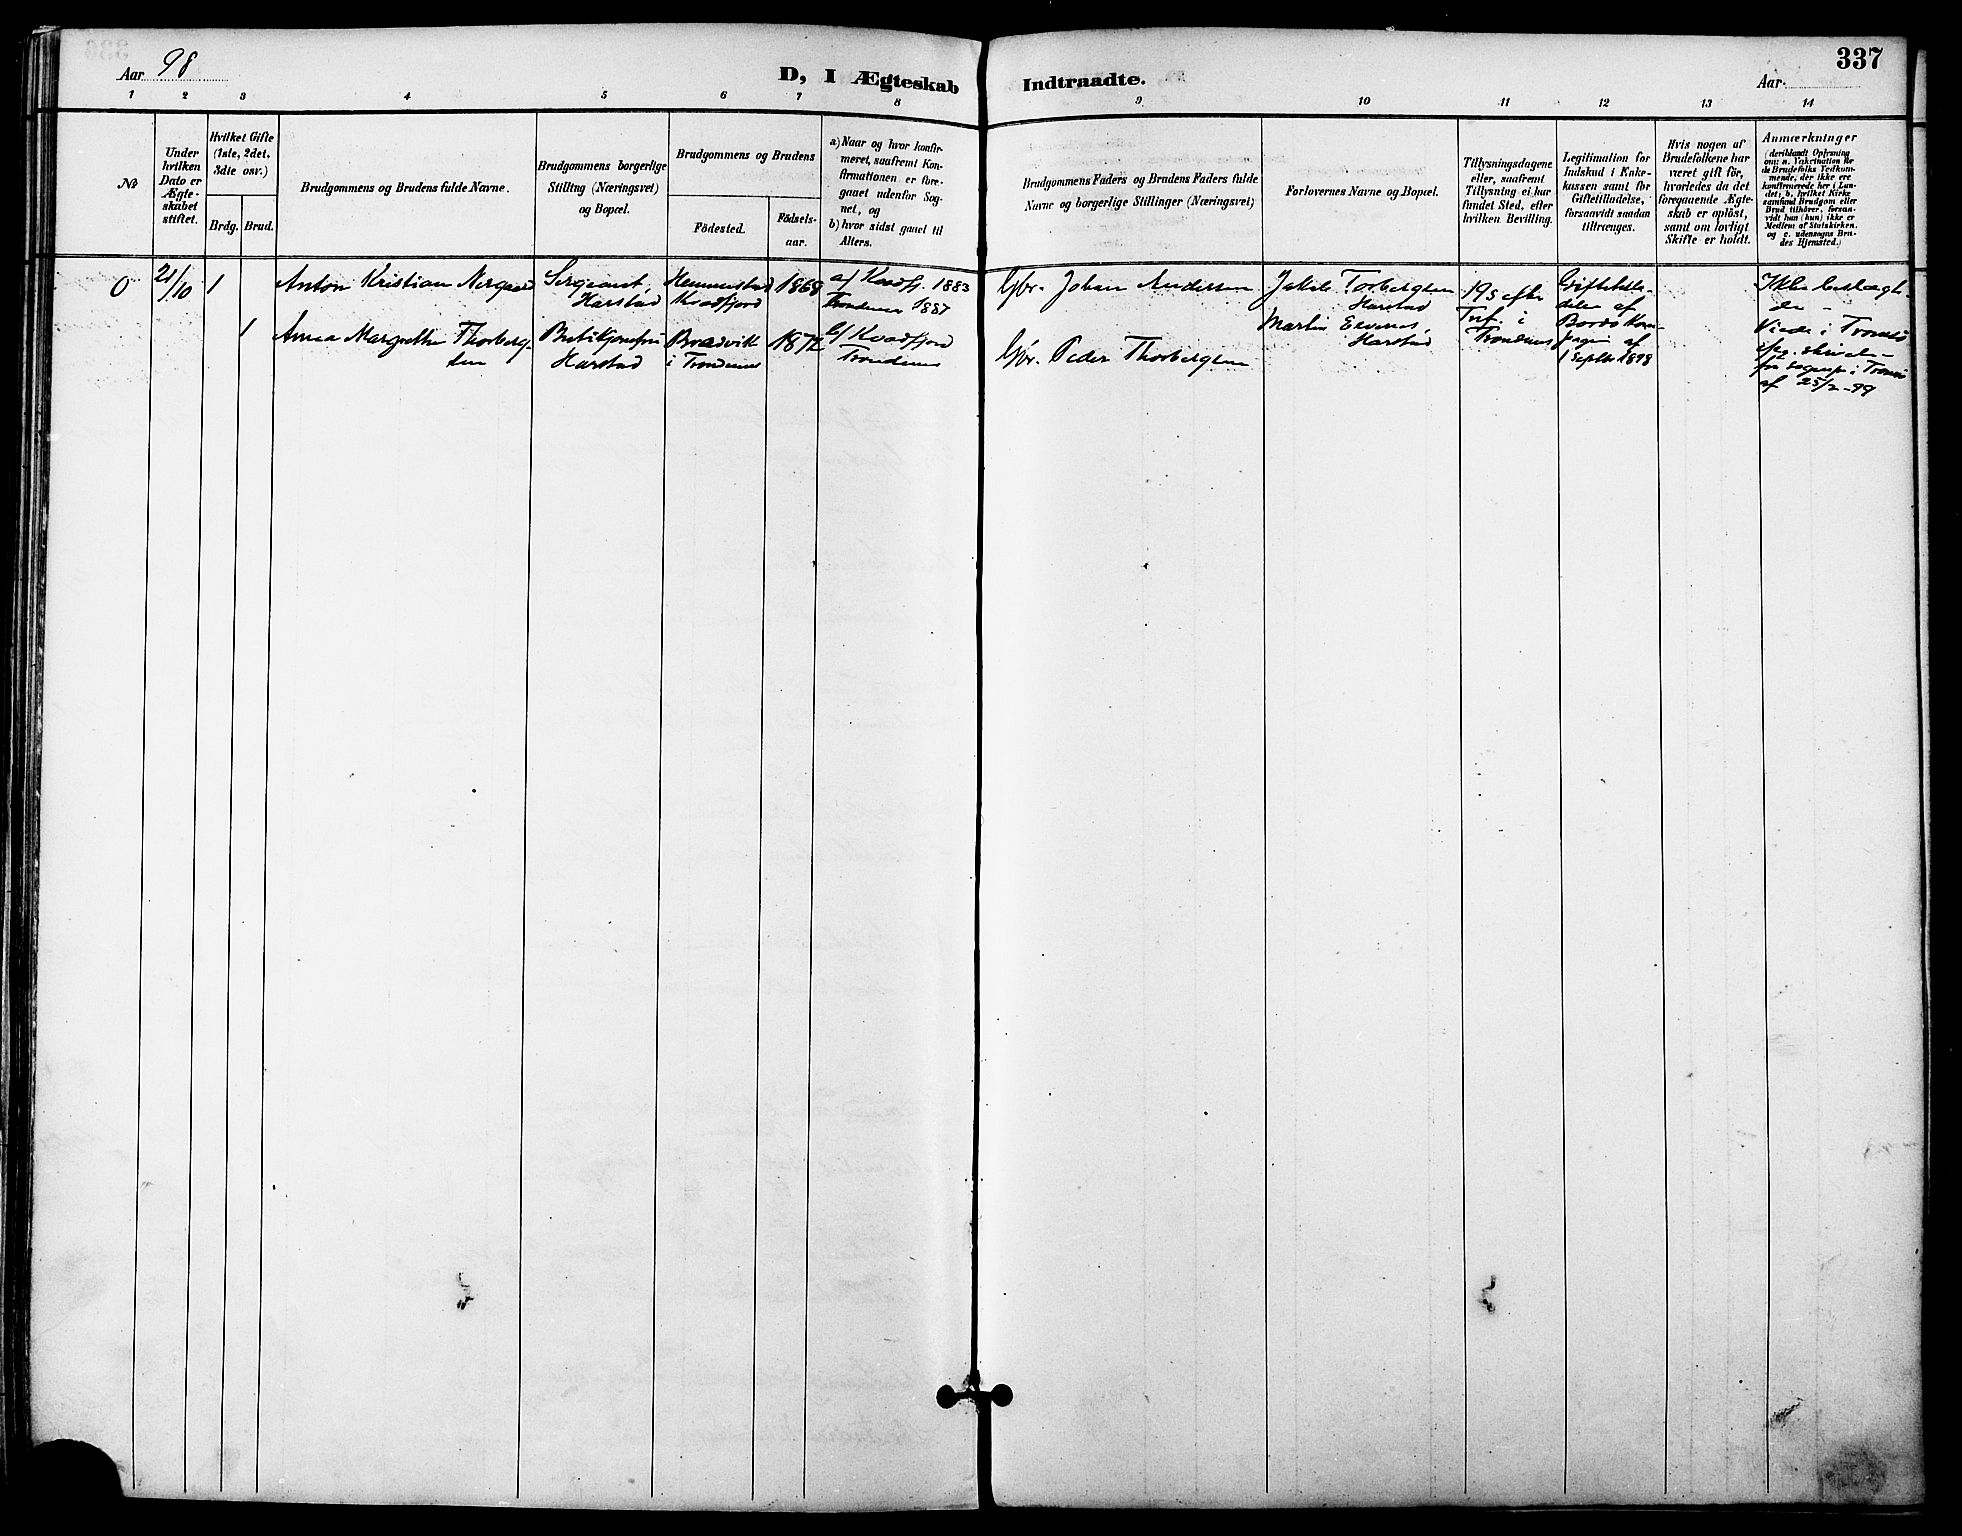 Aar 98
D, I Ægteskab Indtraadte.
Aar
337
1 2 3 4 5 6 7 8 9 10 11 12 13 14
No
Under
hvilken
Dato er
Ægte-
skabet
stiftet.
Hvilket Gifte
(1ste, 2det,
3die osv.)
Brdg. Brud.
Brudgommens og Brudens fulde Navne.
Brudgommens borgerlige
Stilling (Næringsvei)
og Bopæl.
Brudgommens og Brudens
Födested.
Födsels-
aar.
a) Naar og hvor konfir-
meret, saafremt Kon-
firmationen er fore-
gaaet udenfor Sog-
net, og
b) hvor sidst gaaet til
Alters.
Brudgommens Faders og Brudens Faders fulde
Navne og borgerlige Stillinger (Næringsvei)
Forlovernes Navne og Bopæl.
Tillysningsdagene
eller, saafremt
Tillysning ei har
fundet Sted, efter
hvilken Bevilling.
Legitimation for
Indskud i Enke-
kassen samt for
Giftetilladelse,
forsaavidt saadan
tiltrænges.
Hvis nogen af
Brudefolkene har
været gift för,
hvorledes da det
foregaaende Ægte-
skab er oplöst,
samt om lovligt
Skifte er holdt.
Anmærkninger
(deriblandt Oplysning
om: a. Vakcination for
de Brudefolks Vedkom-
mende, der ikke ere
konfirmerede her i Lan-
det; b. hvilket Kirke
samfund Brudgom eller
Brud tilhörer, forsaa-
vidt han (hun) ikke er
Medlem af Statskirken,
og c. udensogns Bru-
des Hjemsted.)
0 21/10 1 Anton Kristian Nergaard
Sergeant,
Harstad
Hemmestad
Kvadfjord
1868
a/ Kvadfj. 1883
Trondenes 1887
Gbr. Johan Andersen
Jakob Torbergsen
Harstad
Martin Evenes,
Harstad
19 5 efter
i
Trondenes
af
af
1 Septbr 1898
Ikke beslægte-
de -
Viede i Tromsö
i Tromsö
af 25/2-99
1 Anna Margrethe Thorberg-
sen
Harstad
i Trondenes
1872
b/ Kvadfjord
Trondenes
Gbr. Peder Thorbergsen